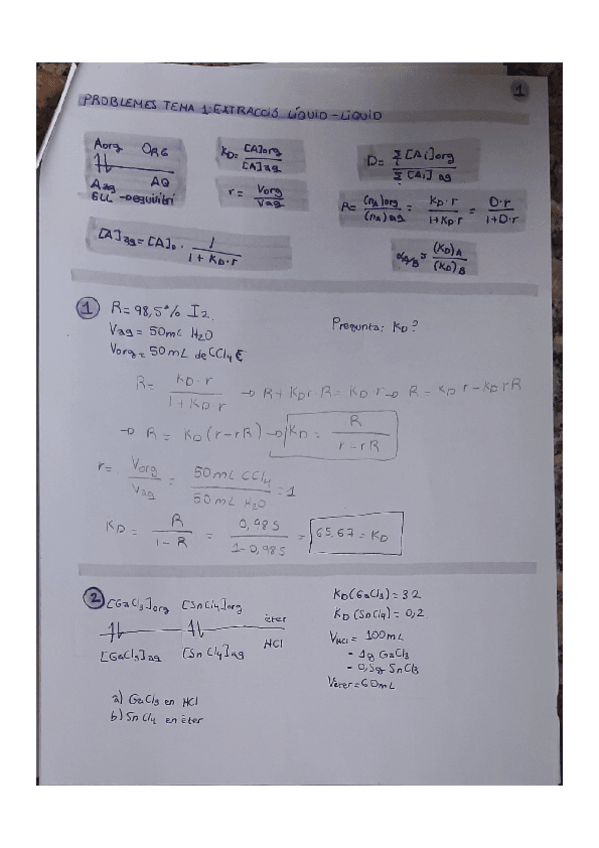 1
PROBLEMES TEMA 1: EXTRACCIÓ LÍQUID-LÍQUID
Aorg ORG
Aaq AQ
ELL - D equilibri
KD = [A]org / [A]aq
r = Vorg / Vaq
D = Σ[Ai]org / Σ[Ai]aq
R = (nA)org / (nA)aq = KD·r / 1+KD·r = D·r / 1+D·r
[A]aq = [A]o · 1 / 1+KD·r
αA/B = (KD)A / (KD)B
1 R = 98,5% I2
Vaq = 50mL H2O
Vorg = 50mL de CCl4
Pregunta: KD?
R = KD·r / 1+KD·r → R + KDr·R = KD·r → R = KD r - KD rR
→ R = KD (r-rR) → KD = R / r-rR
r = Vorg / Vaq = 50mL CCl4 / 50mL H2O = 1
KD = R / 1-R = 0,985 / 1-0,985 = 65,67 = KD
2 [GaCl3]org [SnCl4]org èter
[GaCl3]aq [SnCl4]aq HCl
a) GaCl3 en HCl
b) SnCl4 en èter
KD (GaCl3) = 32
KD (SnCl4) = 0,2
VHCl = 100mL
- 1g GaCl3
- 0,5g SnCl3
Vèter = 60mL